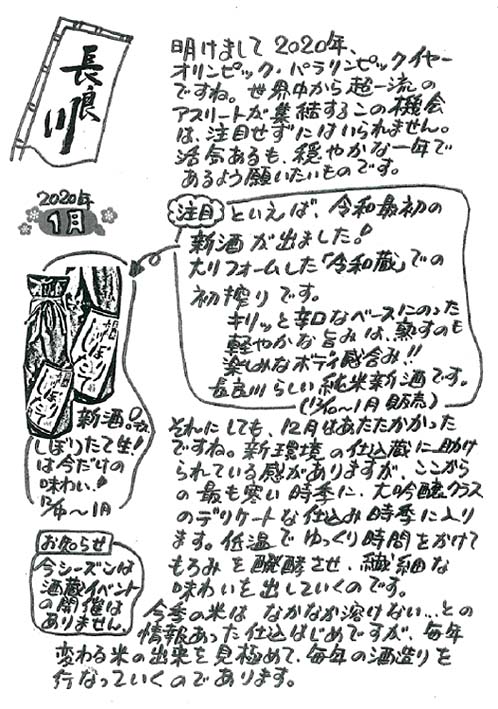 長良川
明けまして2020年、
オリンピック・パラリンピックイヤー
ですね。世界中から超一流の
アスリートが集結するこの機会
は、注目せずにはいられません。
活気あるも、穏やかな一年で
あるよう願いたいものです。
2020年
1月
注目といえば、令和最初の
新酒が出ました!
大リフォームした「令和蔵」での
初搾りです。
キリッと辛口なベースにのった
軽やかな旨みは、熟すのも
楽しみなボディ感含み!!
長良川らしい純米新酒です。
(12/10〜1月販売)
新酒の
しぼりたて生!
は今だけの
味わい!
12/中〜1月
お知らせ
今シーズンは
酒蔵イベント
の開催は
ありません。
それにしても、12月はあたたかかった
ですね。新環境の仕込蔵に助け
られている感がありますが、ここから
の最も寒い時季に、大吟醸クラス
のデリケートな仕込み時季に入り
ます。低温でゆっくり時間をかけて
もろみを醗酵させ、繊細な
味わいを出していくのです。
今季の米はなかなか溶けない…との
情報あった仕込はじめですが、毎年
変わる米の出来を見極めて、毎年の酒造りを
行なっていくのであります。